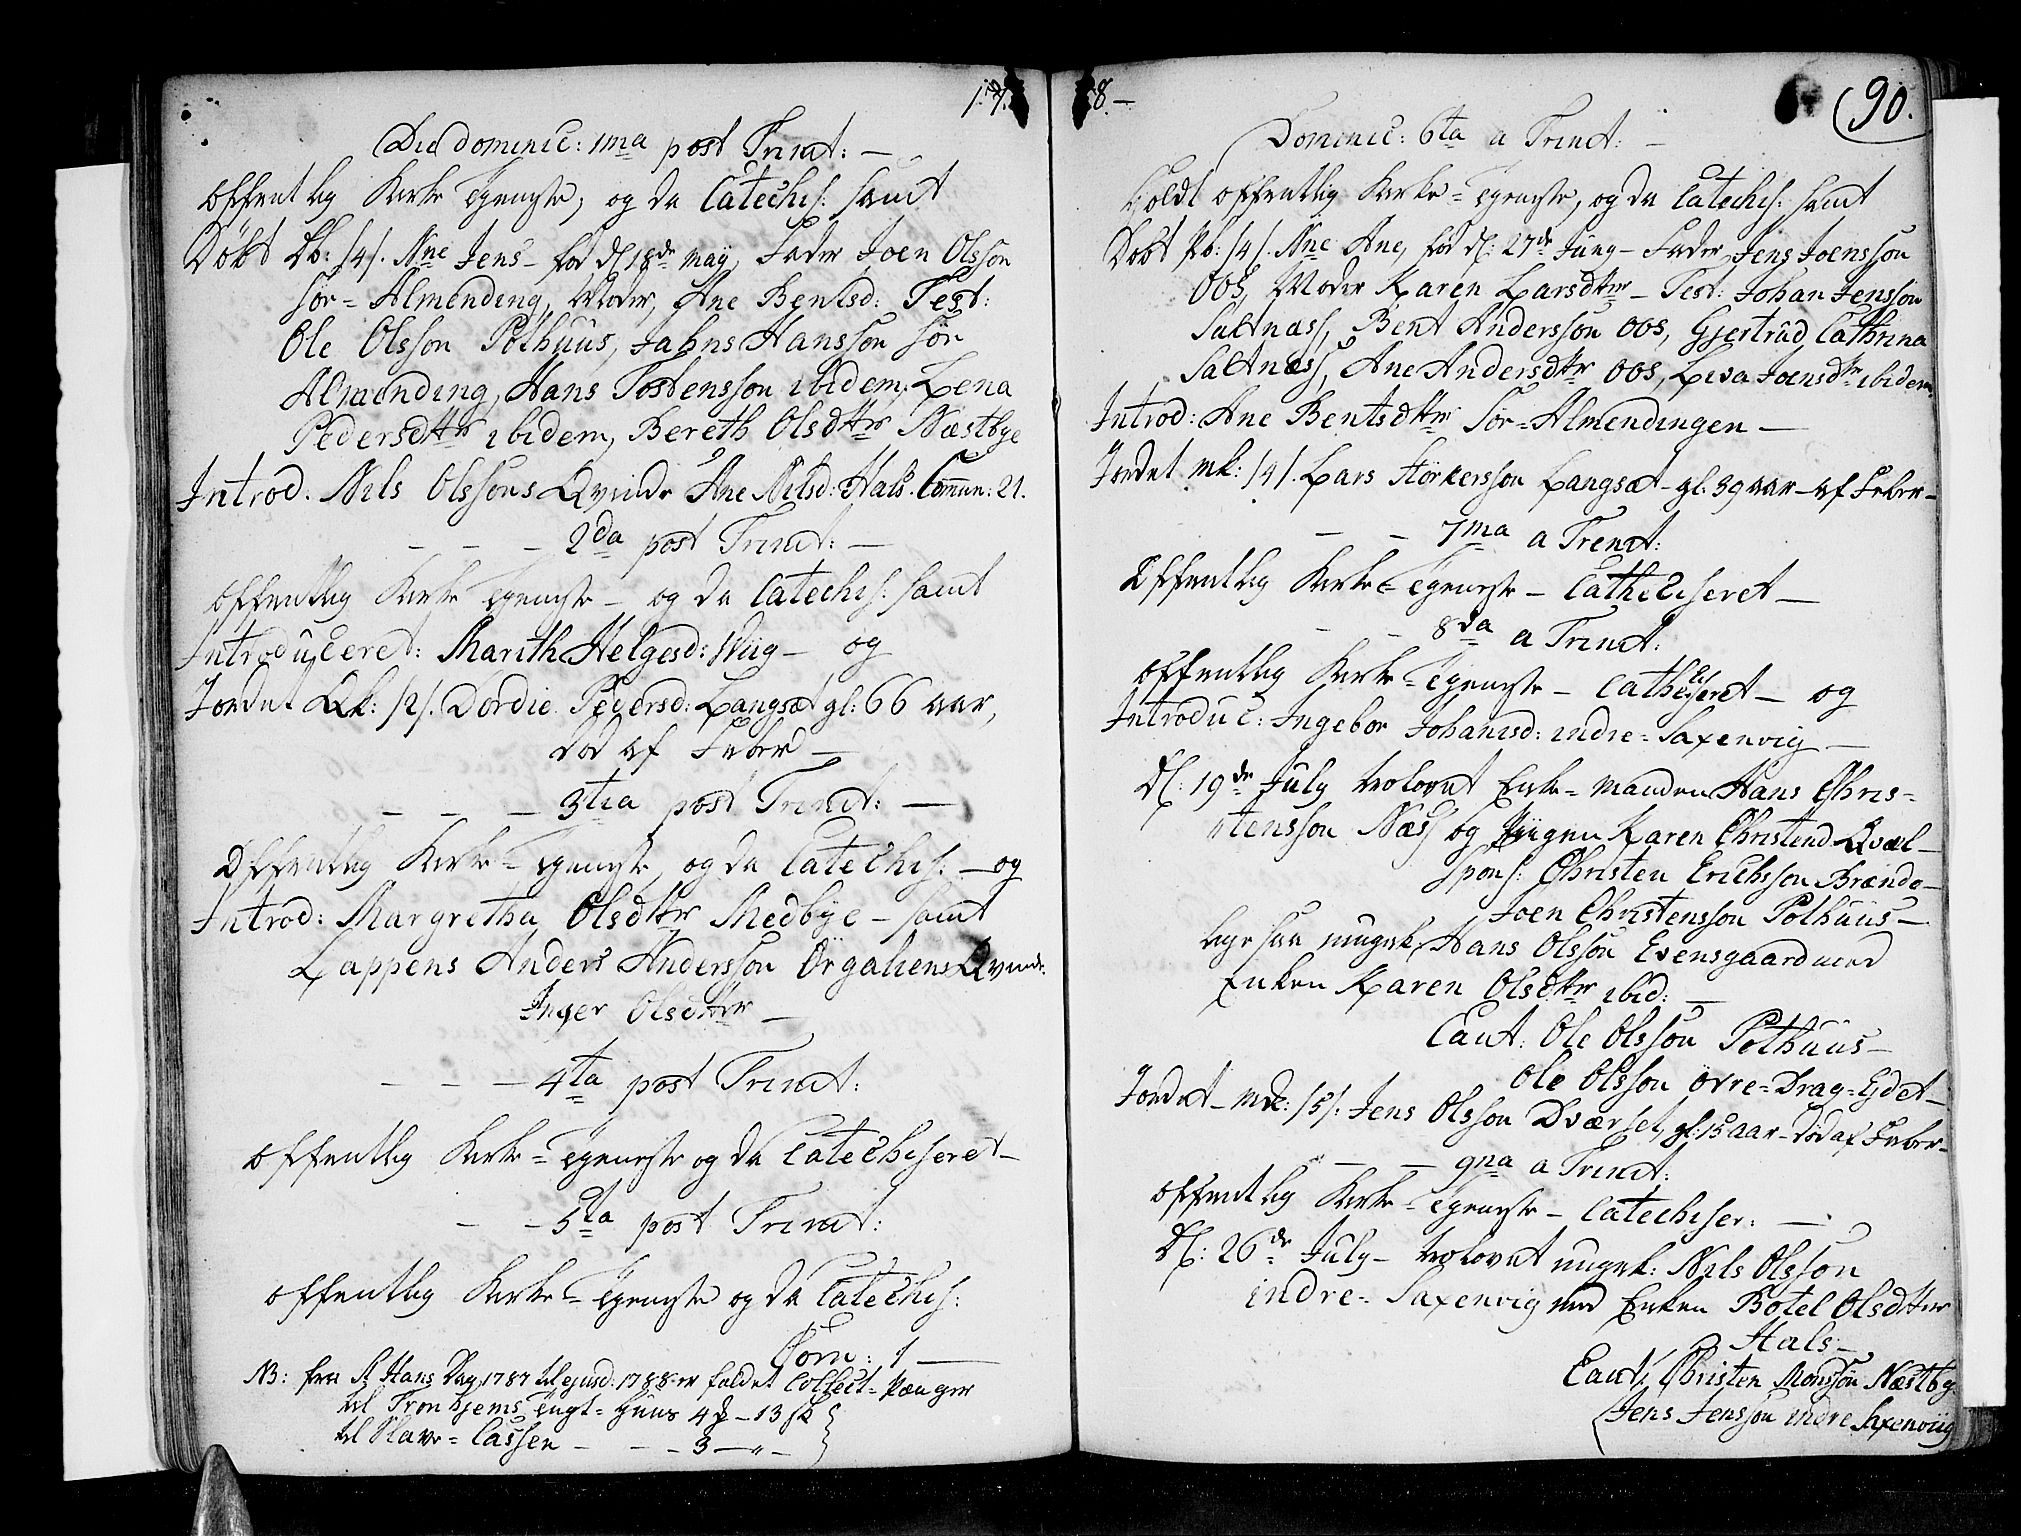 17
Die dominic: 1ma post Trinit: —
offentlig Kirke Tjeneste, og da Catechis: samt
Døbt Db: /4/. Nne Jens — fød d: 18de may, Fader Joen Olsson
Sør = Almending, Moder, Ane Bentsd: Test:
Ole Olsson Pothuus, Jahns Hansson Sør
Almending, Hans Tostensson ibidem, Lena
Pedersdttr ibidem, Bereth Olsdttr Næstbye
Introd. Nils Olssons Qvinde Ane Nilsd: Hals. Commun: 21.
— — — 2da post Trinit: —
offentlig Kirke Tjeneste — og da Catechis: samt
Introduceret: Marith Helgesd: Wiig — og
Jordet Qk: /2/. Dordie Pedersd: Langsæt gl: 66 aar,
død af Feber —
— — — 3tia post Trinit: —
Offentlig Kirke = Tjeneste, og da Catechis: — og
Introd: Margretha Olsdttr Medbye — samt
Lappens Anders Andersson Ørgaliens Qvinde
Inger Olsdttr —
— — — 4ta post Trinit:
offentlig Kirke = Tjeneste og da Catechiseret —
— — 5ta post Trinit:
offentlig Kirke = Tjeneste og da Catechis:
Com: 1 —
NB: fra St Hans Dag 1787 til ejusd: 1788 er faldet Collect = Penger
til Trondhjems Tugt = Huus 4 — 13 sk
til Slave = Cassen — — — 3 — " —
8 —
90.
Dominic: 6ta a Trinit: —
Holdt offentlig Kirke = Tjeneste, og da Catechis: samt
Døbt Pb: /4/. Nne Ane, fød d: 27de Juny — Fader, Jens Joensson
Oos, Moder Karen Larsdttr — Test: Johan Jensson
Saltnæss, Bent Andersson Oos, Gjertrud Cathrina
Saltnæss, Ane Andersdttr Oos, Lisa Joensdtr ibidem
Introd: Ane Bentsdttr Sør = Almendingen —
Jordet mk: /4/. Lars Størkersson Langsæt — gl: 39 aar — af Feber —
— — 7ma a Trinit:
Offentlig Kirke = Tjeneste — Catheciseret —
— — 8da a Trinit:
offentlig Kirke = Tjeneste — Catheciseret — og
Introduc: Ingebor Johanisd: indre = Saxenvig —
D: 19de July trolovet Enke = manden Hans Chris =
tensson Næss og Piigen Karen Christend Qvæl —
Spons: Christen Erichsson Brændo —
Joen Christensson Pothuus —
lige saa ungek: Hans Olsson Evensgaard med
Enken Karen Olsdttr ibid: —
Caut: Ole Olsson Pothuus —
Ole Olsson øvre = Drag = Ejdet —
Jordet — mk: /5/. Jens Olsson Dværset, gl: 15 aar — død af Feber —
— — 9na a Trinit:
offentlig Kirke = Tjeneste — Catechiser: —
D: 26de July — trolovet ungek: Nils Olsson
indre = Saxenvig med Enken Botel Olsdttr
Hals —
Caut: Christen Monsson Næstby
Jens Jensson indre Saxenviig